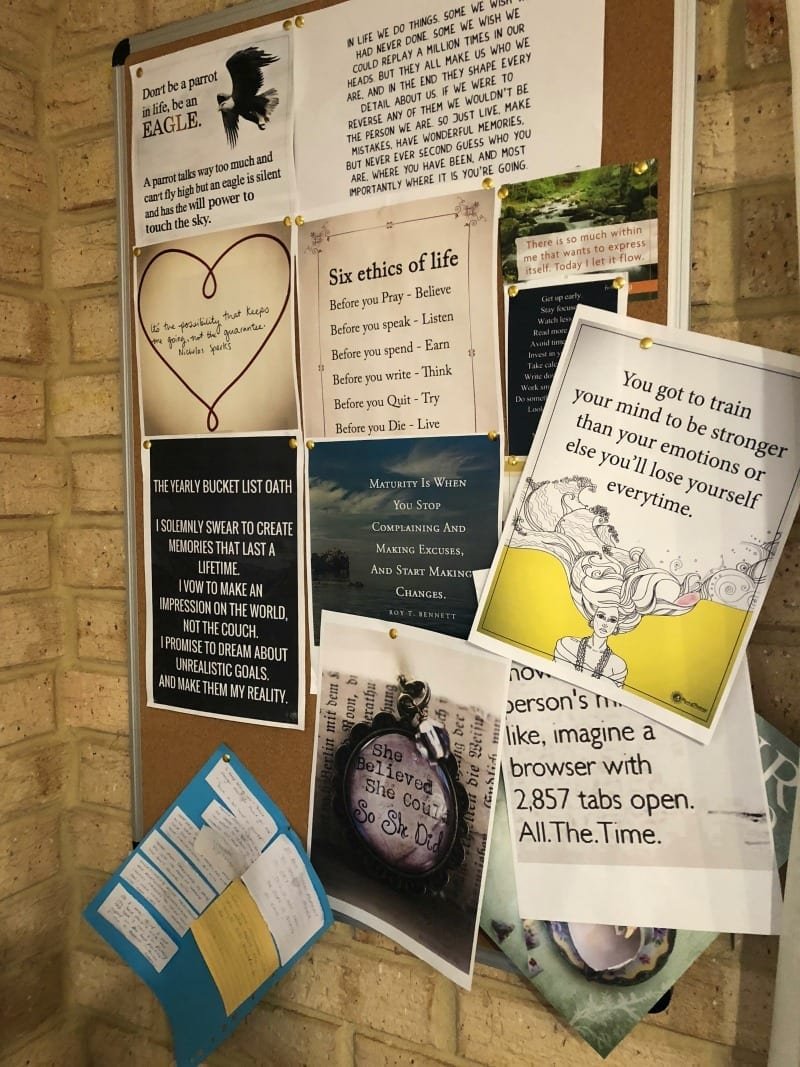 Don't be a parrot
in life, be an
EAGLE.
A parrot talks way too much and
can't fly high but an eagle is silent
and has the will power to
touch the sky.
IN LIFE WE DO THINGS. SOME WE WISH
HAD NEVER DONE. SOME WE WISH WE
COULD REPLAY A MILLION TIMES IN OUR
HEADS. BUT THEY ALL MAKE US WHO WE
ARE, AND IN THE END THEY SHAPE EVERY
DETAIL ABOUT US. IF WE WERE TO
REVERSE ANY OF THEM WE WOULDN'T BE
THE PERSON WE ARE. SO JUST LIVE, MAKE
MISTAKES, HAVE WONDERFUL MEMORIES,
BUT NEVER EVER SECOND GUESS WHO YOU
ARE, WHERE YOU HAVE BEEN, AND MOST
IMPORTANTLY WHERE IT IS YOU'RE GOING.
It's the possibility that keeps
me going, not the guarantee.
Nicholas Sparks
Six ethics of life
Before you Pray - Believe
Before you speak - Listen
Before you spend - Earn
Before you write - Think
Before you Quit - Try
Before you Die - Live
There is so much within
me that wants to express
itself. Today I let it flow.
Get up early.
Stay
Watch
Read more
Avoid
Invest in
Take
Write
Work
Do
You got to train
your mind to be stronger
than your emotions or
else you'll lose yourself
everytime.
THE YEARLY BUCKET LIST OATH
I SOLEMNLY SWEAR TO CREATE
MEMORIES THAT LAST A
LIFETIME.
I VOW TO MAKE AN
IMPRESSION ON THE WORLD,
NOT THE COUCH.
I PROMISE TO DREAM ABOUT
UNREALISTIC GOALS.
AND MAKE THEM MY REALITY.
MATURITY IS WHEN
YOU STOP
COMPLAINING AND
MAKING EXCUSES,
AND START MAKING
CHANGES.
ROY T. BENNETT
She
Believed
She Could
So She Did
person's
like, imagine a
browser with
2,857 tabs open.
All.The.Time.